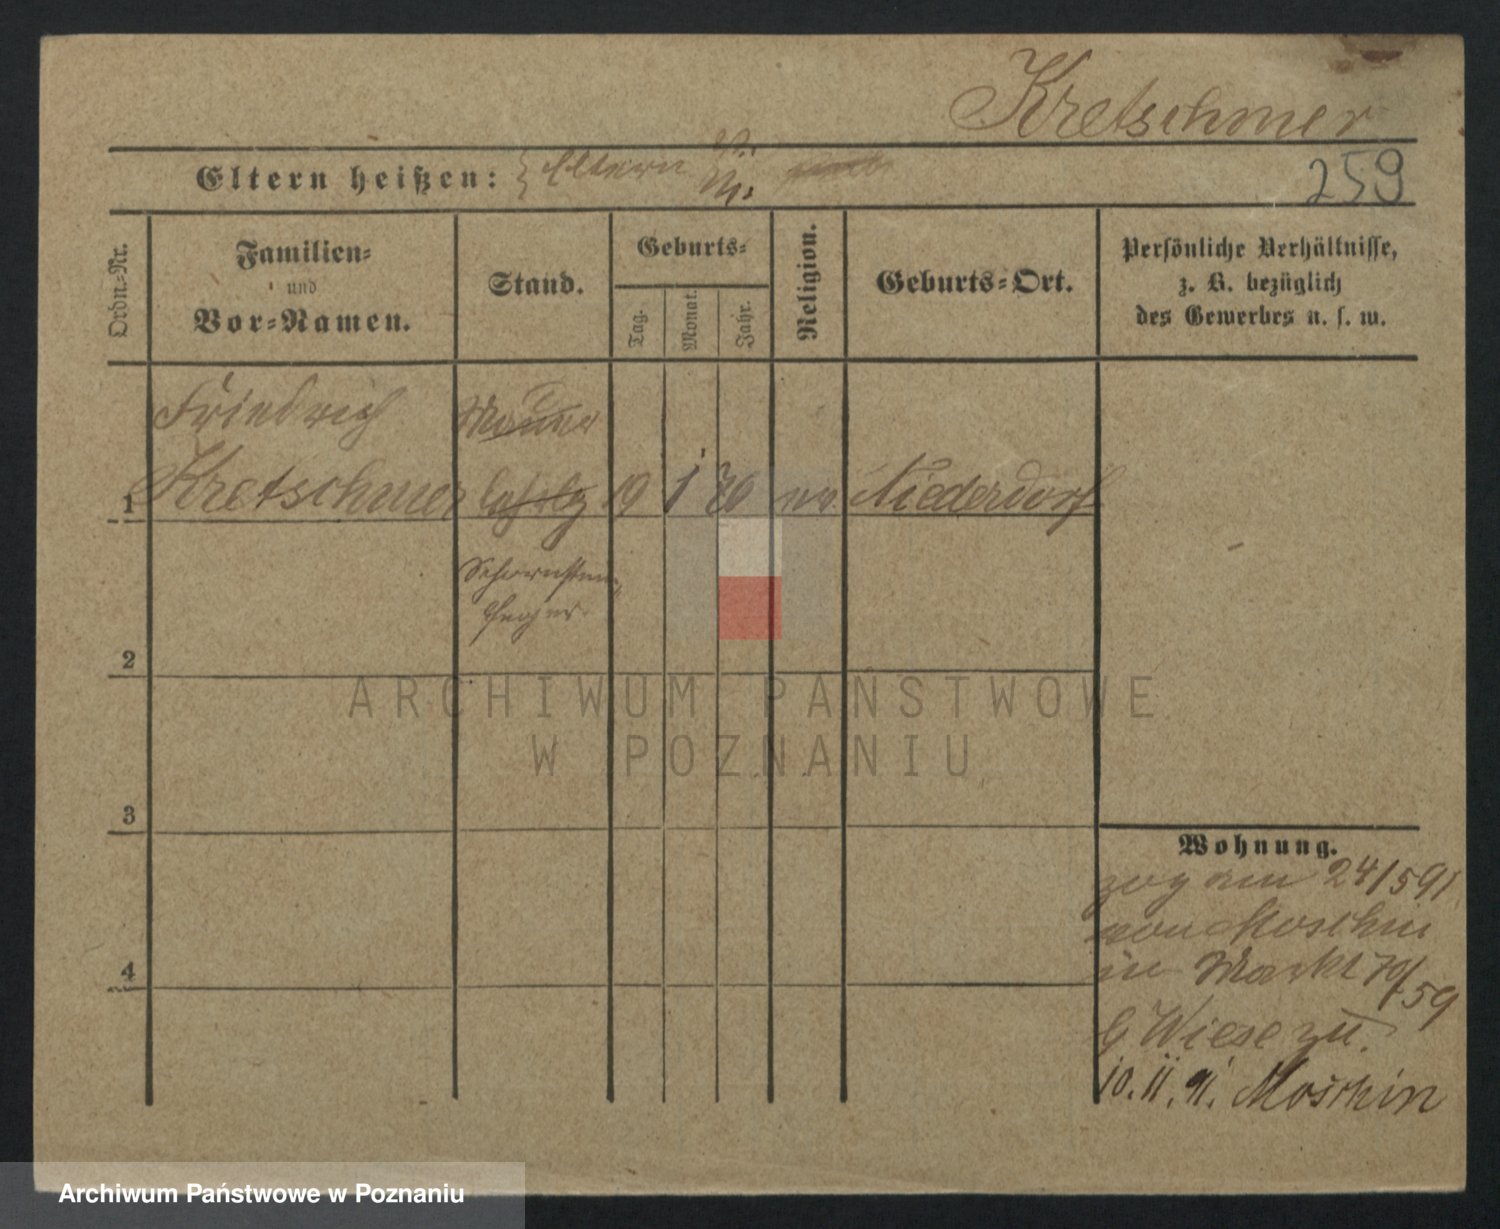 Kretschmer
Eltern heißen: Eltern
259
Ordn.-Nr.
Familien-
und
Vor-Namen.
Stand.
Geburts-
Tag.
Monat.
Jahr.
Religion.
Geburts-Ort.
Persönliche Verhältnisse,
z. B. bezüglich
des Gewerbes u. s. w.
Friedrich
Maurer
1 Kretschmer 19 1 70 ev. Niederdorf
Schornstein-
feger
2
3
4
Wohnung.
zog am 24/5 91
von Moschin
in Markt 70/59
b Wiese zu.
10. 11. 91. Moschin
ARCHIWUM PAŃSTWOWE
W POZNANIU
Archiwum Państwowe w Poznaniu